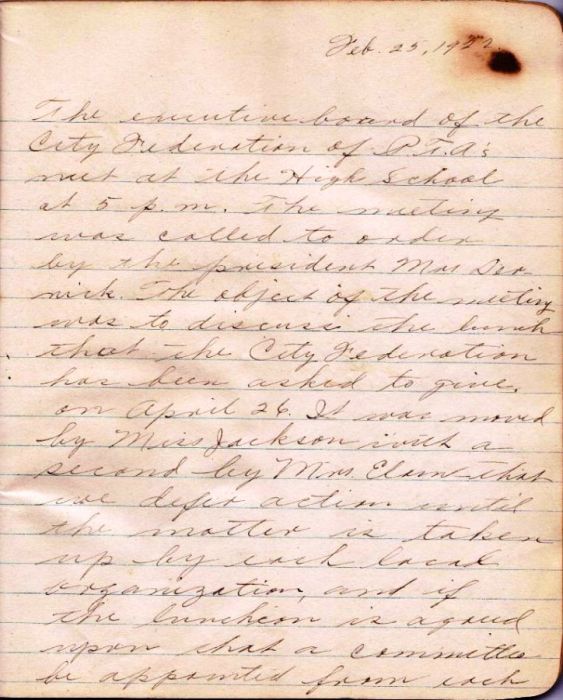 Feb. 25, 1922.
The executive board of the
City Federation of P.T.A's
met at the High School
at 5 p.m. The meeting
was called to order
by the president Mrs
nick. The object of the meeting
was to discuss the lunch
that the City Federation
has been asked to give.
on April 26. It was moved
by Miss Jackson with a
second by Mrs. Elam that
we defer action until
the matter is taken
up by each local
organization, and if
the luncheon is agreed
upon that a committee
be appointed from each